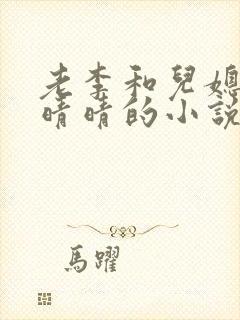 老李和兒媳
晴晴的小說
馬躍